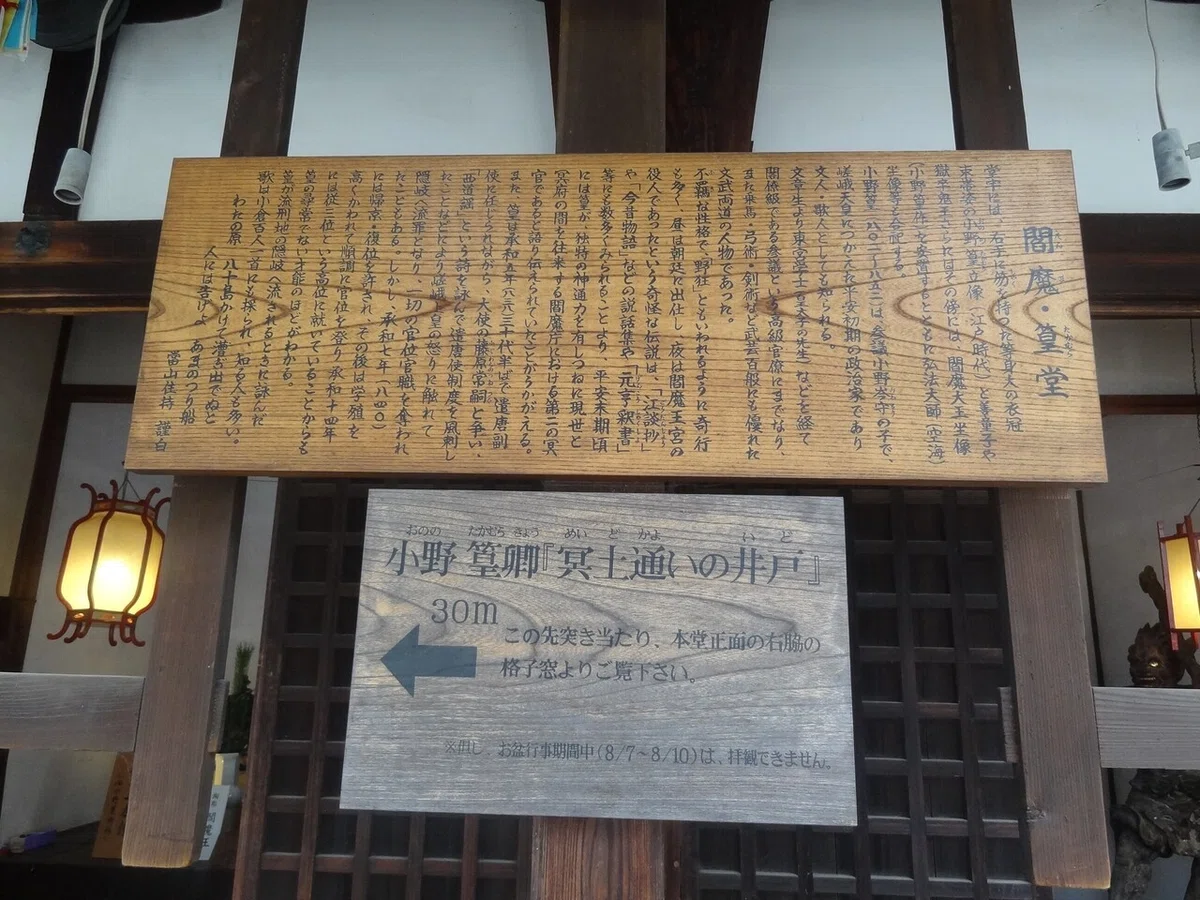 閻魔・篁堂
堂中には、右手に笏を持った等身大の衣冠
束帯姿の小野篁立像（江戸時代）と善童子や
獄卒鬼王さらにはその傍には、閻魔大王坐像
（小野篁作）を安置するとともに弘法大師（空海）
坐像等を合祀する。
小野篁（八〇二〜八五二）は、参議小野岑守の子で、
嵯峨天皇につかえた平安初期の政治家であり
文人・歌人としても知られる。
文章生より東宮学士（皇太子の先生）などを経て
閣僚級である参議という高級官僚にまでなり、
また乗馬・弓術・剣術など武芸百般にも優れた
文武両道の人物であった。
不羈な性格で、「野狂」ともいわれるように奇行
も多く、昼は朝廷に出仕し、夜は閻魔王宮の
役人であったという奇怪な伝説は、「江談抄」
や「今昔物語」などの説話集や「元亨釈書」
等にも数多くみられることより、平安末期頃
には篁が、独特の神通力を有しつねに現世と
冥府の間を往来する閻魔庁における第一の冥
官であると語り伝えられていたことがうかがえる。
また、篁は承和五年（八三八）三十代半ばで、遣唐副
使に任じられながら、大使の藤原常嗣と争い、
「西道謡」という詩を詠んで遣唐使制度を風刺し
たことなどにより嵯峨上皇の怒りに触れて
隠岐へ流罪となり、一切の官位官職を奪われ
たこともある。しかし、承和七年（八四〇）
には帰京・復位を許され、その後は学殖を
高くかわれて順調に官位を登り、承和十四年
には従三位という高位に就いていることからも
篁の尋常でない才能のほどがわかる。
篁が流刑地の隠岐へ流されるときに詠んだ
歌は小倉百人一首にも採られ、知る人も多い。
わたの原　八十島かけて漕ぎ出でぬと
人には告げよ　あまのつり船
当山住持　謹白
おのの たかむら きょう めい ど かよ い ど
小野 篁卿『冥土通いの井戸』
30m
この先突き当たり、本堂正面の右脇の
格子窓よりご覧下さい。
※但し、お盆行事期間中（8/7〜8/10）は、拝観できません。